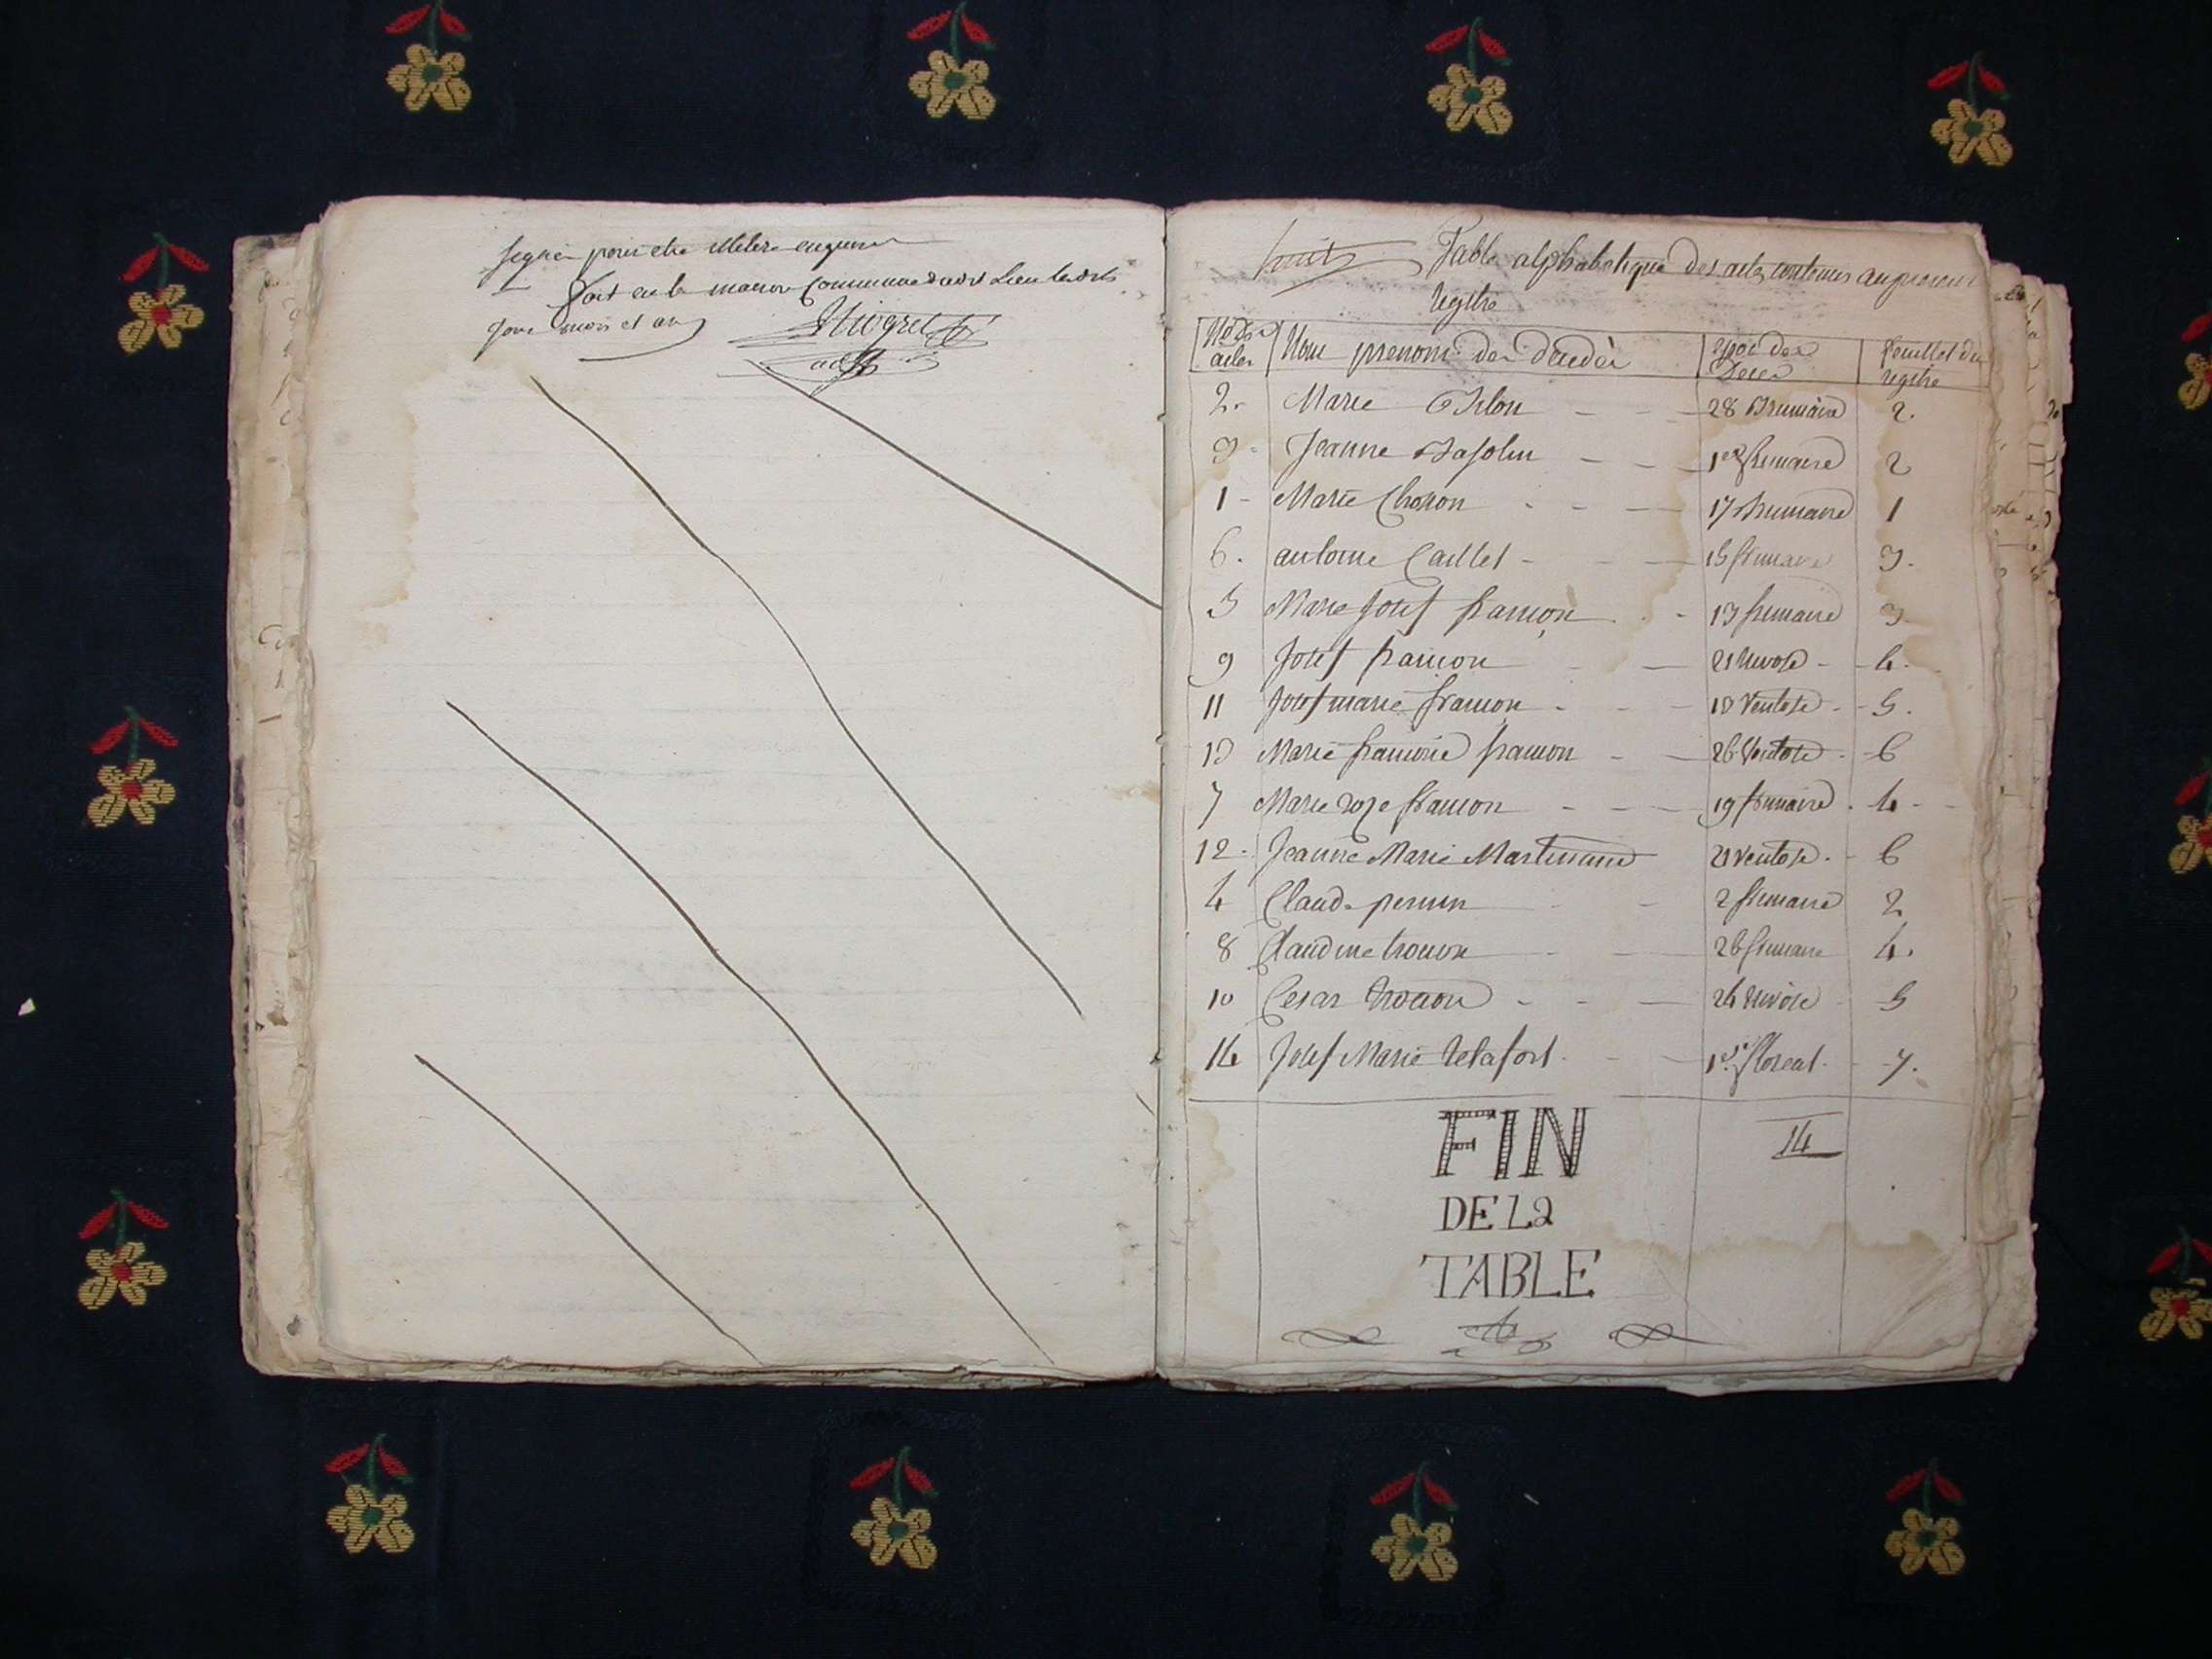 pour etre
fait en la maison Commune dudit Lieu lesdits
jour mois et an
huit Table alphabetique des actes contenus au present
registre
Nos des actes Nom prenom des décédés Epoc des Deces feuillet du registre
2. Marie 28 Brumaire 2.
3 Jeanne 1er frimaire 2
1 Marie 17 Brumaire 1
6. antoine Caillet 15 frimaire 3.
5 Marie Josef francon 13 frimaire 3
9 Josef francon 21 Nivose 4.
11 Josef marie francon 18 Ventose 5.
13 Marie francon 26 Ventose 6
7 Marie roze francon 19 frimaire 4
12. Jeanne Marie 21 Ventose 6
4 Claude perrin 2 frimaire 2
8 Claudine 26 frimaire 4.
10 Cesar 24 Nivose 5
14 Josef Marie 1er floreal 7.
FIN 14
DE La
TABLE